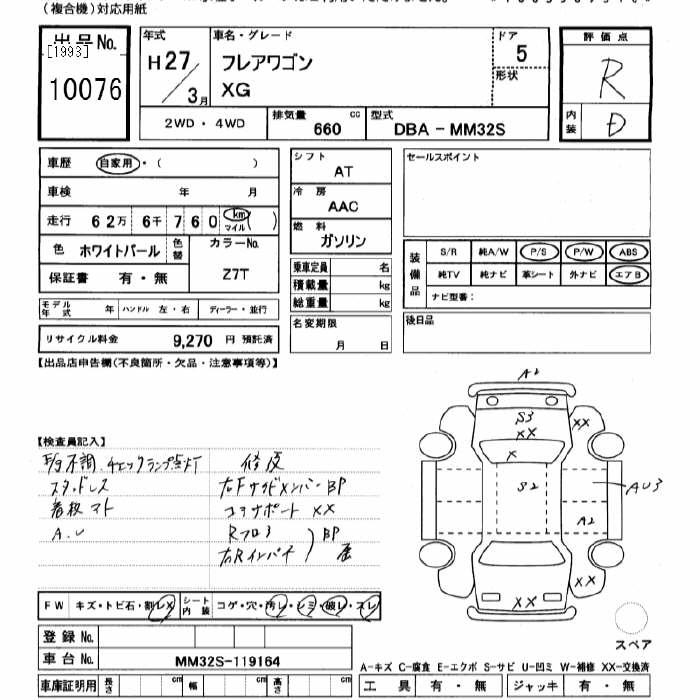 (複合機)対応用紙
出品No.
[1993]
10076
年式
H27/3月
車名・グレード
フレアワゴン
XG
ドア
5
形状
評価点
R
内装
D
2WD・4WD
排気量 660 cc
型式 DBA-MM32S
車歴 自家用・( )
車検 年 月
走行 62万 6千 760 km マイル ( )
色 ホワイトパール 色替
カラーNo.
Z7T
保証書 有・無
シフト
AT
冷房
AAC
燃料
ガソリン
乗車定員 名
積載量 kg
総重量 kg
セールスポイント
装備品
S/R 純A/W P/S P/W ABS
純TV 純ナビ 革シート 外ナビ エアB
ナビ型番:
モデル年式 年 ハンドル 左・右 ディーラー・並行
リサイクル料金 9,270 円 預託済
名変期限
月 日
後日品
【出品店申告欄(不良箇所・欠品・注意事項等)】
【検査員記入】
不調 チェックランプ点灯
スタッドレス
A.U
修復
右Fサイドメンバー BP
コアサポート XX
Rフロア
右Rインパネ
BP
歪
A2
S3
XX
XX
X
S2
AU3
A2
XX
XX
スペア
FW キズ・トビ石・割レX
シート内装 コゲ・穴・汚レ・シミ・破レ・スレ
登録No.
車台No. MM32S-119164
車庫証明用 長さ cm 幅 cm 高さ cm
A-キズ C-腐食 E-エクボ S-サビ U-凹ミ W-補修 XX-交換済
工具 有・無 ジャッキ 有・無